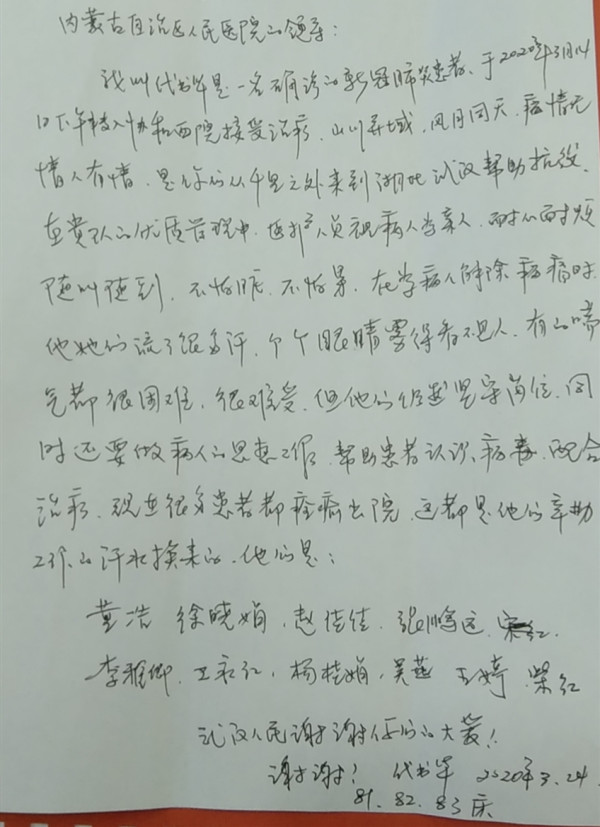 内蒙古自治区人民医院的领导:
我叫代书年是一名确诊的新冠肺炎患者、于2020年3月14
日下午转入协和西院接受治疗. 山川异域, 风月同天, 病情无
情人有情. 是你们从千里之外来到湖北武汉帮助抗疫.
在贵队的优质管理中. 医护人员视病人当亲人. 耐心耐烦
随叫随到, 不怕脏. 不怕累, 在学病人解除病痛时.
他她们流了很多汗, 个个眼睛雾得看不见人. 有的喘
气都很困难. 很难受. 但他们仍然坚守岗位. 同
时还要做病人的思想工作. 帮助患者认识病毒. 配合
治疗. 现在很多患者都痊愈出院. 这都是他们辛勤
工作的汗水换来的. 他们是:
董浩 徐晓娟. 赵佳佳. 张鹏远.
李雅卿. 王永红, 杨桂娟, 吴燕 王婷 柴红
武汉人民谢谢你们的大爱!
谢谢! 代书年 2020年3.24
81. 82. 83床